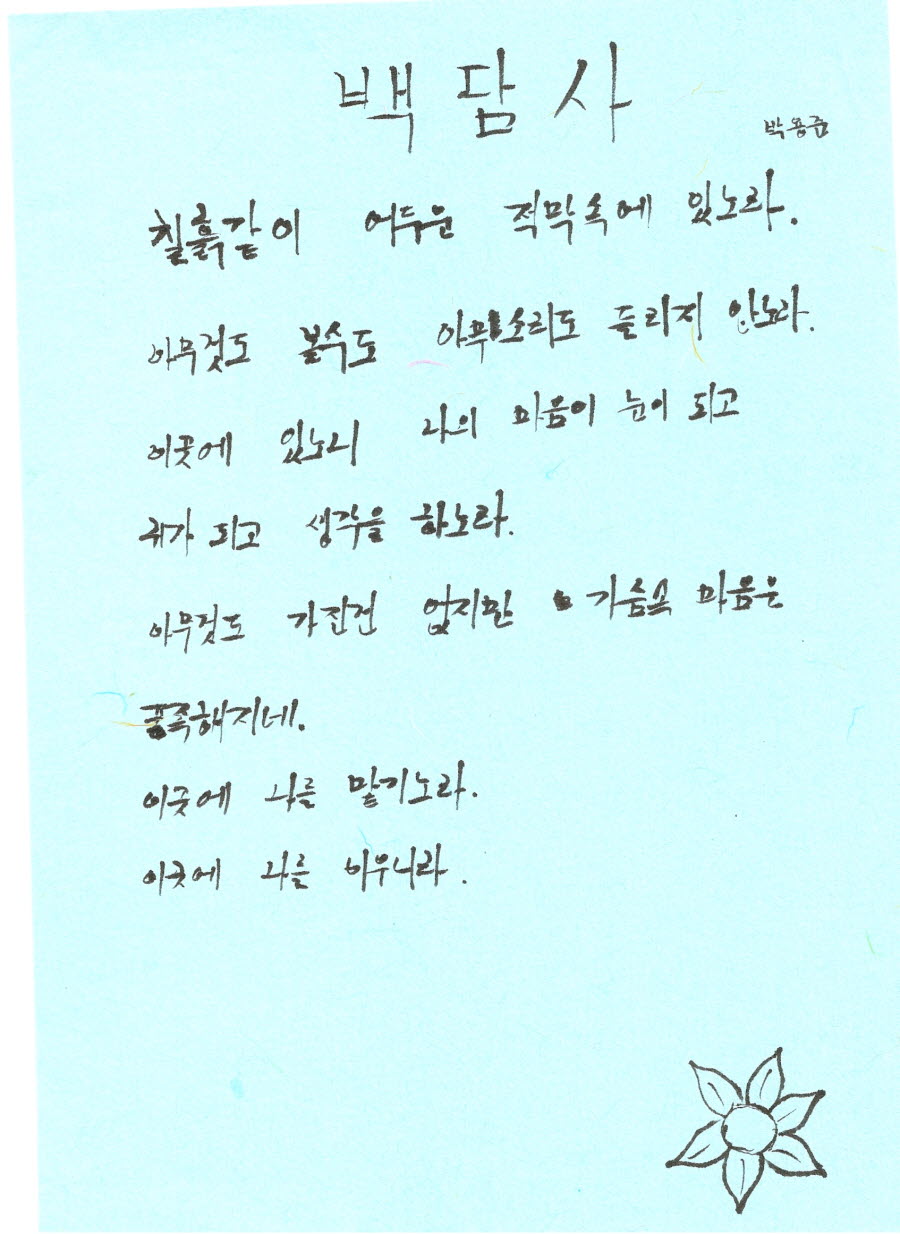 백담사
박용준
칠흙같이 어두운 적막속에 있노라.
아무것도 볼수도 아무소리도 들리지 안노라.
이곳에 있노라 나의 마음이 눈이 되고
귀가 되고 생각을 하노라.
아무것도 가진건 없지만 가슴속 마음은
풍족해지네.
이곳에 나를 맡기노라.
이곳에 나를 비우니라.